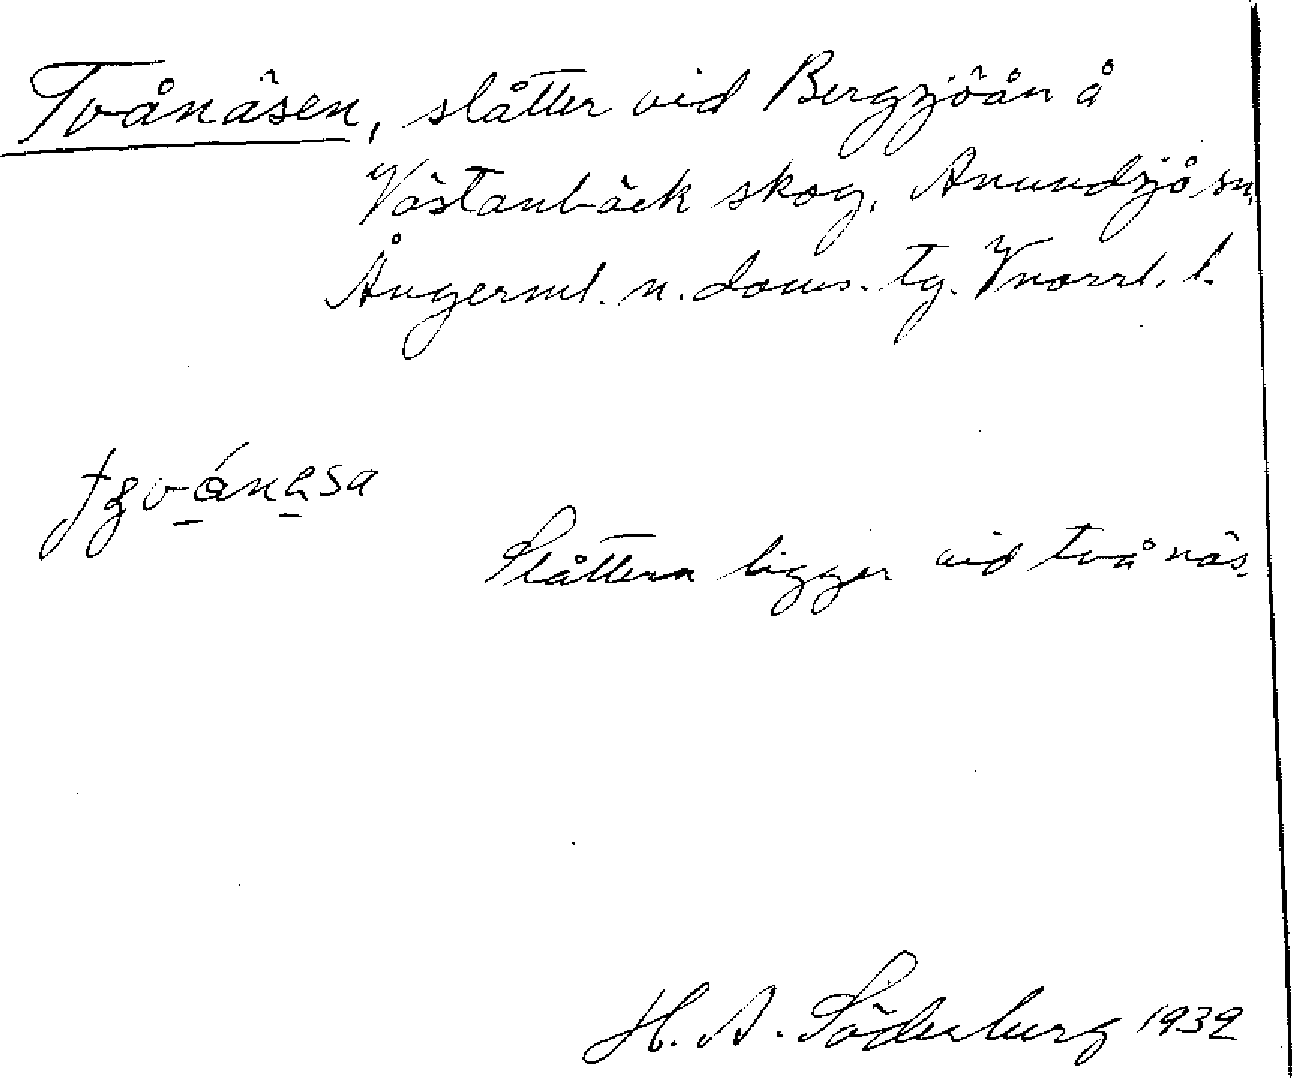 Tvånäsen, slåtter vid Bergsjöån å
Västanbäck skog, Anundsjö sn,
Ångerml. n. doms. tg. Vnorrl. l.
Slåttern ligger vid två näs.
H. A. Söderberg 1932